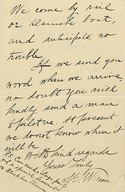 We come by rail
or steam boat,
and anticipate no
trouble.
If we send you
word when we arrive
no doubt you will
kindly send a man
At present
we do not know when it
will be
With kind regards
Yours truly